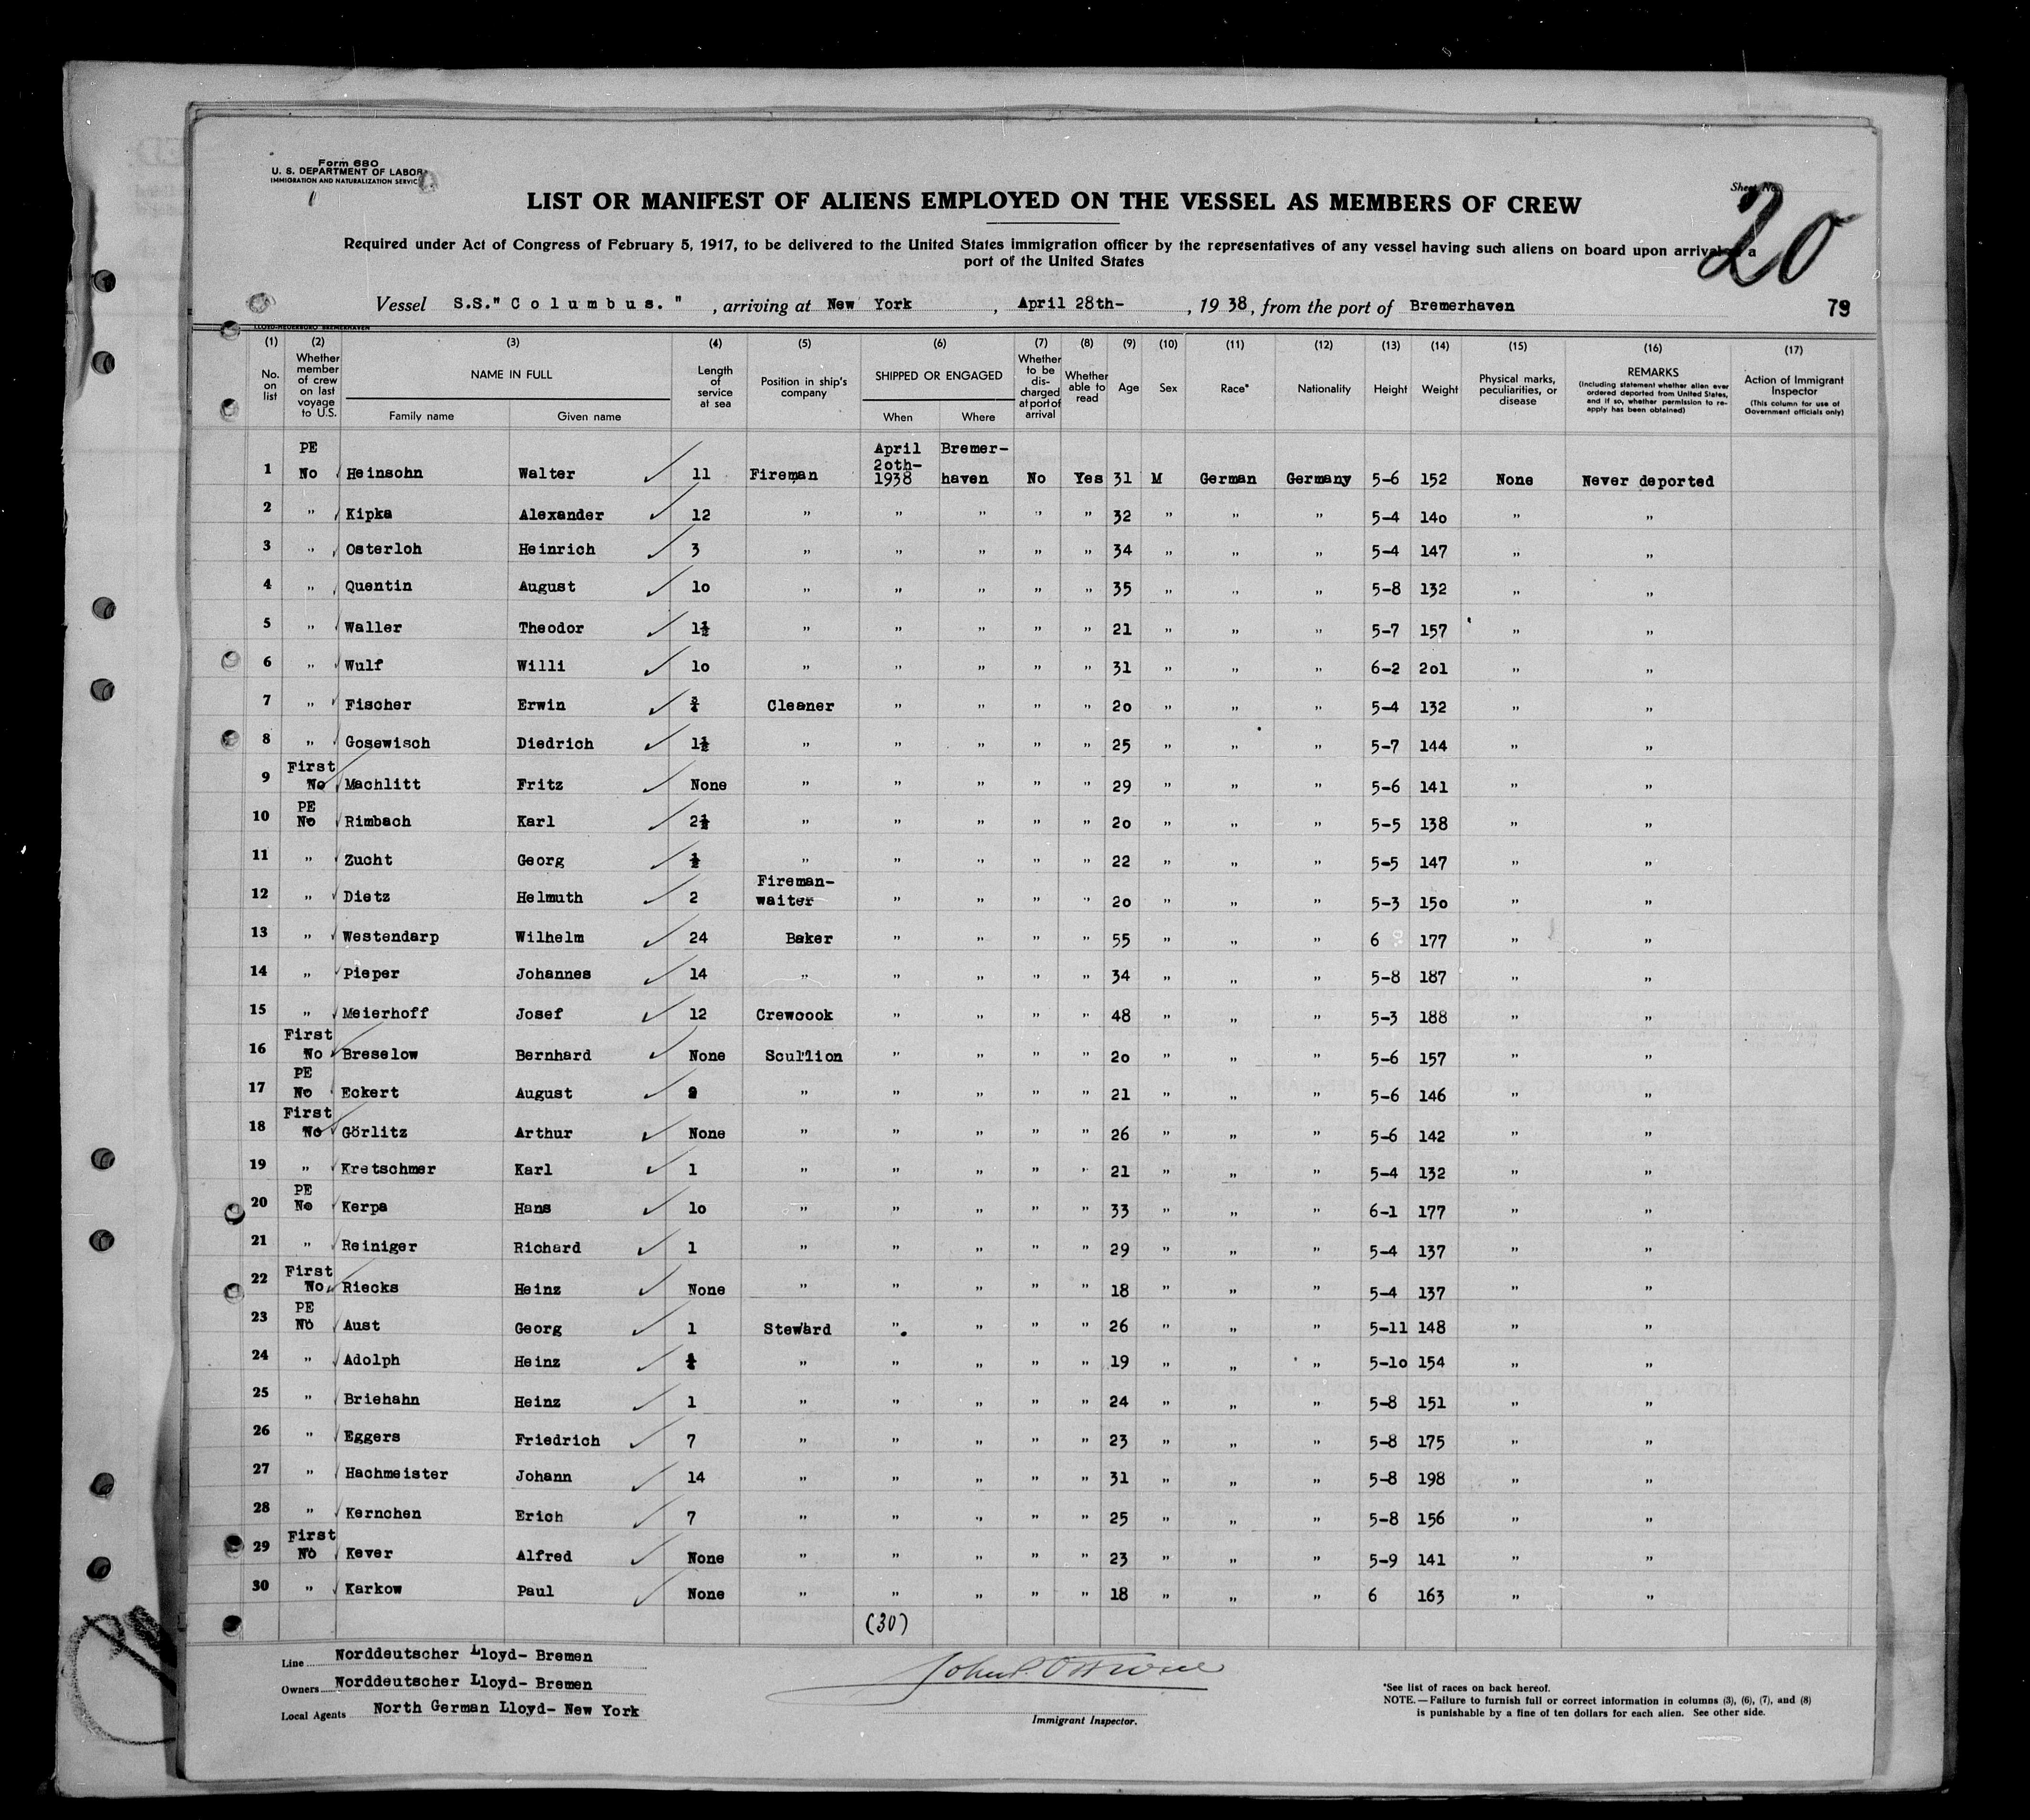 Form 680
U. S. DEPARTMENT OF LABOR
IMMIGRATION AND NATURALIZATION SERVICE
LIST OR MANIFEST OF ALIENS EMPLOYED ON THE VESSEL AS MEMBERS OF CREW
Sheet No.
20
Required under Act of Congress of February 5, 1917, to be delivered to the United States immigration officer by the representatives of any vessel having such aliens on board upon arrival a
port of the United States
Vessel S.S." C o l u m b u s. " , arriving at New York , April 28th- , 19 38, from the port of Bremerhaven
79
(1) (2) (3) (4) (5) (6) (7) (8) (9) (10) (11) (12) (13) (14) (15) (16) (17)
No. on list Whether member of crew on last voyage to U.S. NAME IN FULL Family name Given name Length of service at sea Position in ship's company SHIPPED OR ENGAGED When Where Whether to be discharged at port of arrival Whether able to read Age Sex Race* Nationality Height Weight Physical marks, peculiarities, or disease REMARKS (Including statement whether alien ever ordered deported from United States, and if so, whether permission to reapply has been obtained) Action of Immigrant Inspector (This column for use of Government officials only)
1 PE No Heinsohn Walter 11 Fireman April 2oth- 1938 Bremer- haven No Yes 31 M German Germany 5-6 152 None Never deported
2 " Kipka Alexander 12 " " " " " 32 " " " 5-4 14o " "
3 " Osterloh Heinrich 3 " " " " " 34 " " " 5-4 147 " "
4 " Quentin August 1o " " " " " 35 " " " 5-8 132 " "
5 " Waller Theodor 1½ " " " " " 21 " " " 5-7 157 " "
6 " Wulf Willi 1o " " " " " 31 " " " 6-2 2o1 " "
7 " Fischer Erwin ¾ Cleaner " " " " 2o " " " 5-4 132 " "
8 " Gosewisch Diedrich 1½ " " " " " 25 " " " 5-7 144 " "
9 First No Machlitt Fritz None " " " " " 29 " " " 5-6 141 " "
10 PE No Rimbach Karl 2½ " " " " " 2o " " " 5-5 138 " "
11 " Zucht Georg ½ " " " " " 22 " " " 5-5 147 " "
12 " Dietz Helmuth 2 Fireman- waiter " " " " 2o " " " 5-3 15o " "
13 " Westendarp Wilhelm 24 Baker " " " " 55 " " " 6 177 " "
14 " Pieper Johannes 14 " " " " " 34 " " " 5-8 187 " "
15 " Meierhoff Josef 12 Crewcook " " " " 48 " " " 5-3 188 " "
16 First No Breselow Bernhard None Scullion " " " " 2o " " " 5-6 157 " "
17 PE No Eckert August " " " " " 21 " " " 5-6 146 " "
18 First No Görlitz Arthur None " " " " " 26 " " " 5-6 142 " "
19 " Kretschmer Karl 1 " " " " " 21 " " " 5-4 132 " "
20 PE No Kerpa Hans 1o " " " " " 33 " " " 6-1 177 " "
21 " Reiniger Richard 1 " " " " " 29 " " " 5-4 137 " "
22 First No Riecks Heinz None " " " " " 18 " " " 5-4 137 " "
23 PE No Aust Georg 1 Steward " " " " 26 " " " 5-11 148 " "
24 " Adolph Heinz " " " " " 19 " " " 5-1o 154 " "
25 " Briehahn Heinz 1 " " " " " 24 " " " 5-8 151 " "
26 " Eggers Friedrich 7 " " " " " 23 " " " 5-8 175 " "
27 " Hachmeister Johann 14 " " " " " 31 " " " 5-8 198 " "
28 " Kernchen Erich 7 " " " " " 25 " " " 5-8 156 " "
29 First No Kever Alfred None " " " " " 23 " " " 5-9 141 " "
30 " Karkow Paul None " " " " " 18 " " " 6 163 " "
(30)
Line Norddeutscher Lloyd- Bremen
Owners Norddeutscher Lloyd- Bremen
Local Agents North German Lloyd- New York
Immigrant Inspector.
*See list of races on back hereof.
NOTE.—Failure to furnish full or correct information in columns (3), (6), (7), and (8)
is punishable by a fine of ten dollars for each alien. See other side.